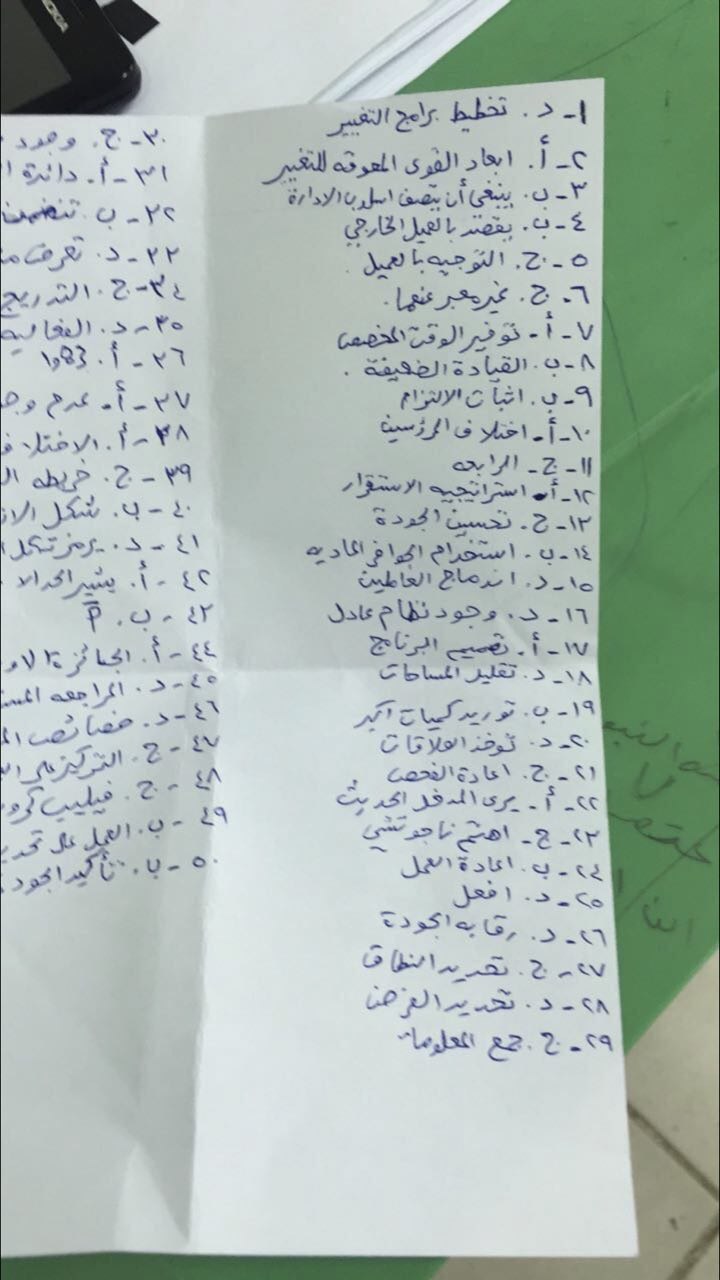 ١- د. تخطيط برامج التغيير
٢- أ. ابعاد القوى المعوقه للتغيير
٣- ب. ينبغي أن يتصف اسلوب الادارة
٤- ب. يقصد بالعميل الخارجي
٥- ج. التوجيه بالعميل
٦- ج. غير معبر عنها.
٧- أ- توفير الوقت المخصص
٨- ب. القيادة الضعيفة.
٩- ب. اثبات الالتزام
١٠- أ- اختلاف المرؤسين
١١- ج- الرابعه
١٢- أ. استراتيجيه الاستقرار
١٣- ج. تحسين الجودة
١٤- ب. استخدام الحوافز الماديه
١٥- د. اندماج العاملين
١٦- د. وجود نظام عادل
١٧- أ- تصميم البرنامج
١٨- د. تقليل المساحات
١٩- ب. توريد كميات اكبر
٢٠- د. توخذ العلاقات
٢١- ج. اعادة الفحص
٢٢- أ- يرى المدخل الحديث
٢٣- ج- اهتم تاجوتشي
٢٤- ب. اعادة العمل
٢٥- د. افعل
٢٦- د. رقابه الجودة
٢٧- ج. تحديد النطاق
٢٨- د. تحديد الغرض
٢٩- ج. جمع المعلومات
٣٠- ج. وجود
٣١- أ. دائرة
٣٢- ب. تتضمن
٣٣- د. تعرف
٣٤- ج. التدريج
٣٥- د. الفعاليه
٣٦- أ. 1983
٣٧- أ- عدم
٣٨- أ. الاختلاف
٣٩- ج. خريطه
٤٠- ب. شكل
٤١- د. يرمز شكل
٤٢- أ. يشير الحد الا
٤٣- ب. P̅
٤٤- أ. الجائزة
٤٥- د. المراجعه
٤٦- د. خصائص
٤٧- ج. التركيز على
٤٨- ج. فيليب كرو
٤٩- ب. العمل على
٥٠- ب. تأكيد الجودة
NOKIA